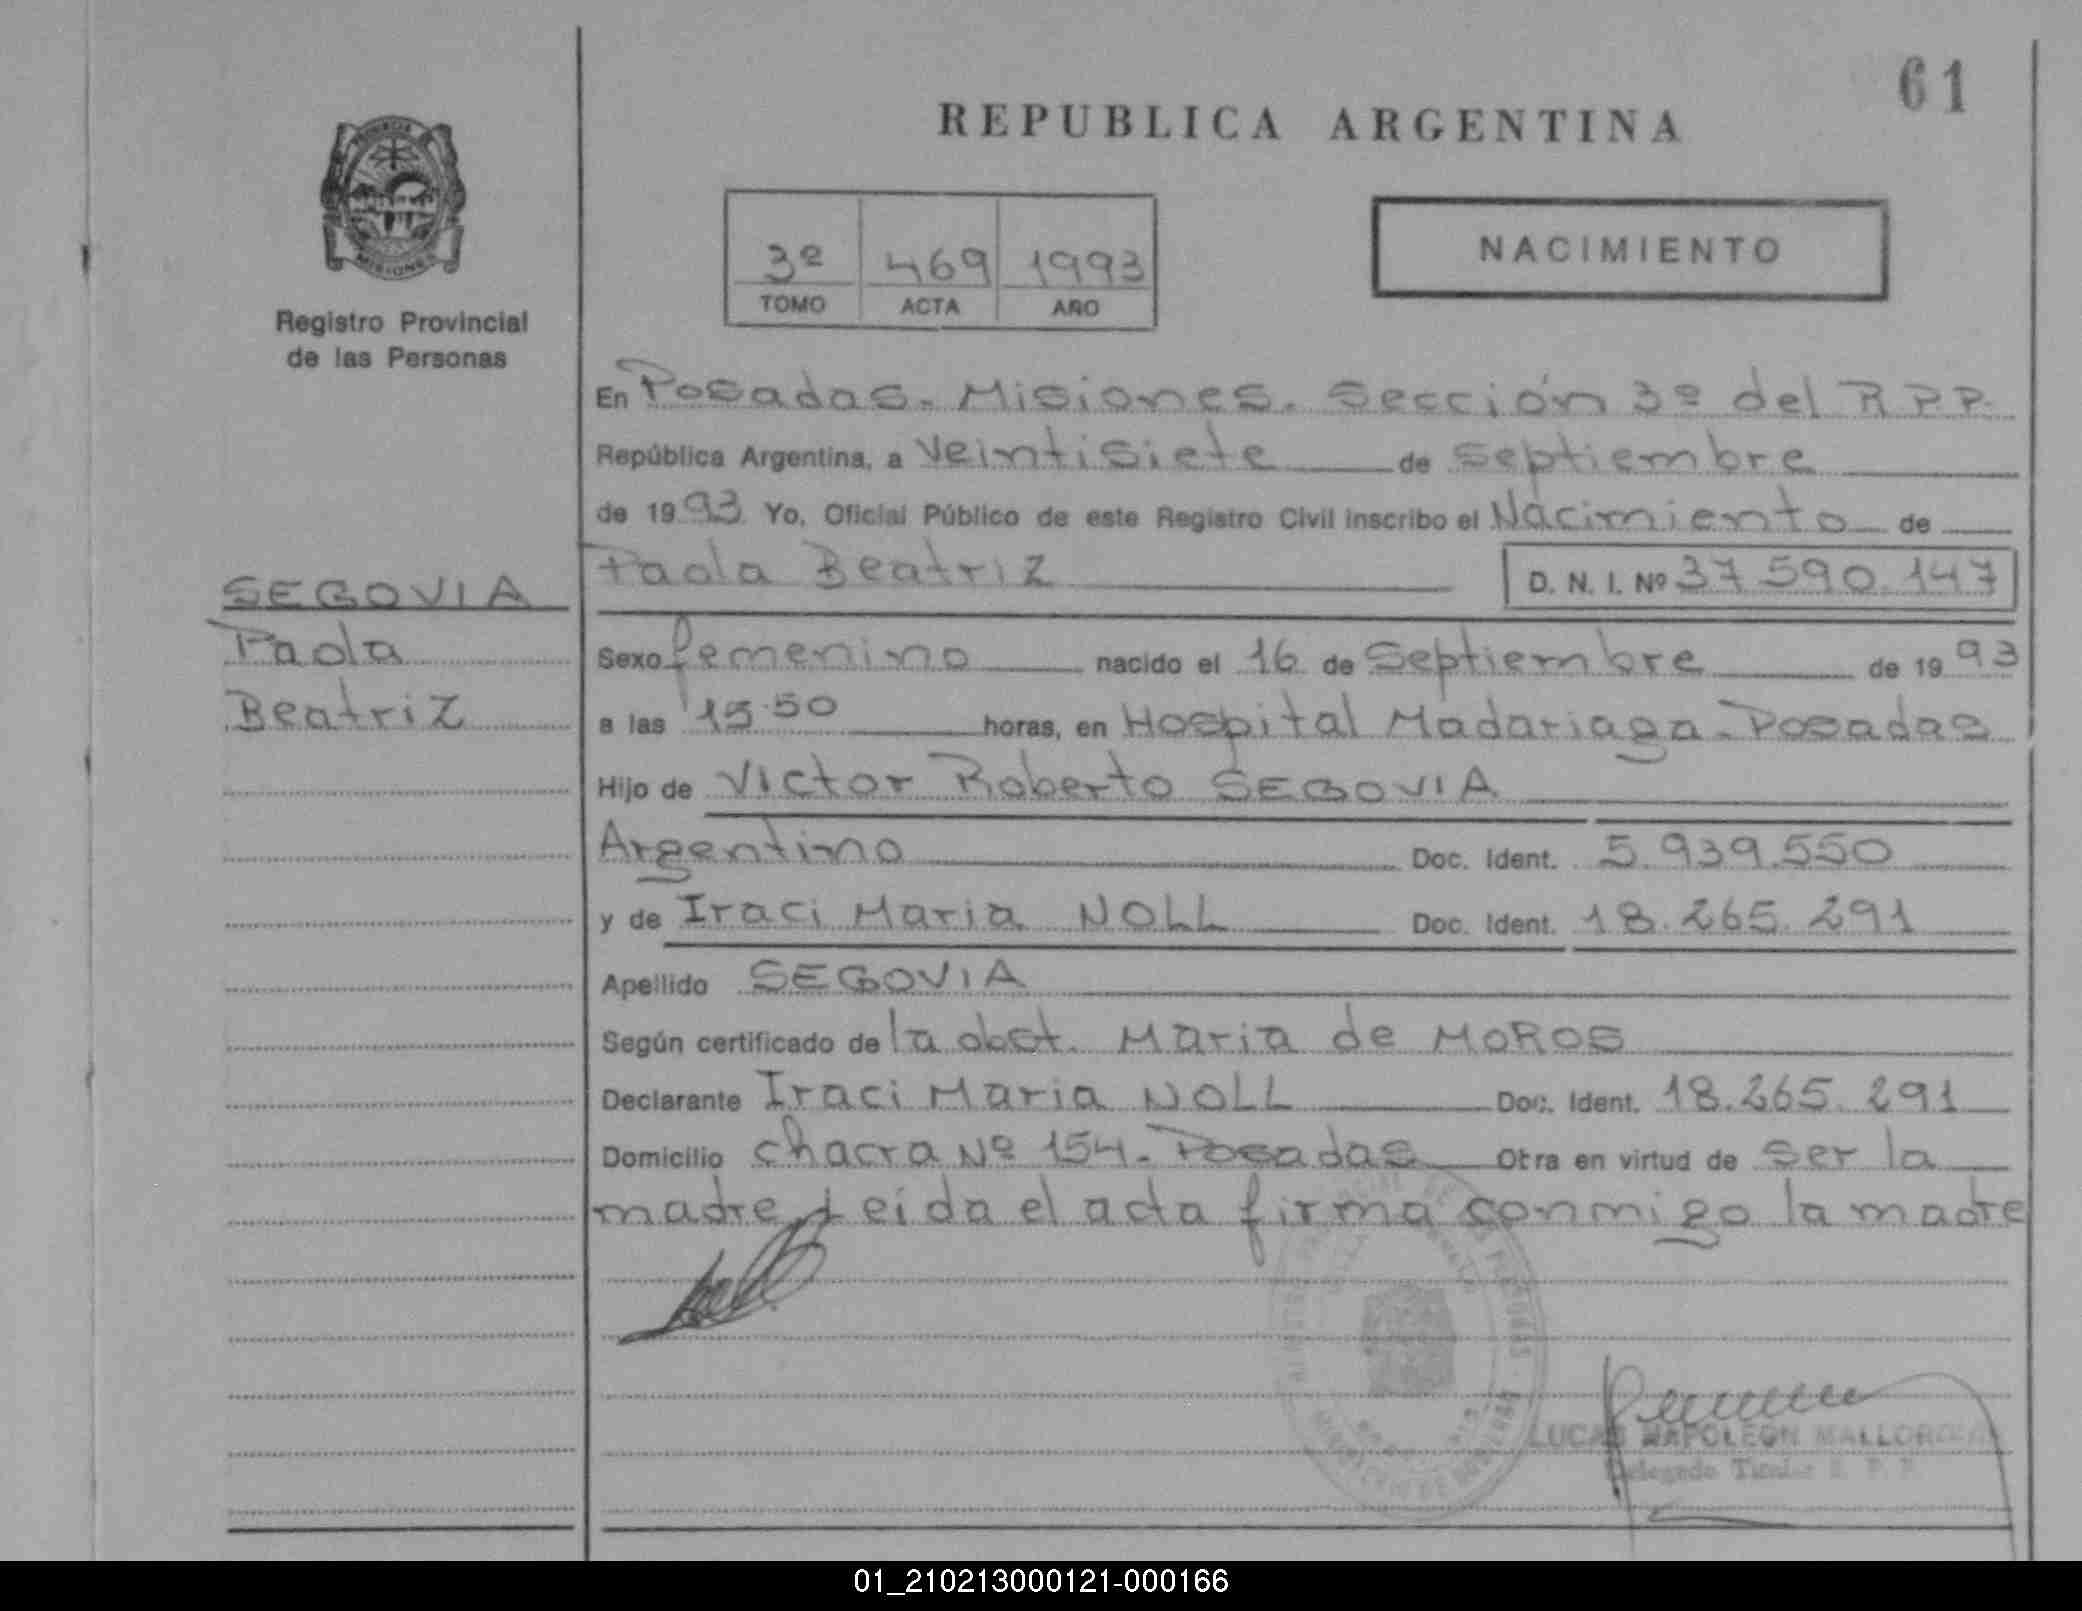 61
REPUBLICA ARGENTINA
MISIONES
Registro Provincial
de las Personas
3º 469 1993
TOMO ACTA AÑO
NACIMIENTO
En Posadas. Misiones. Sección 3º del R.P.P.
República Argentina, a Veintisiete de Septiembre
de 1993 Yo, Oficial Público de este Registro Civil inscribo el Nacimiento de
Paola Beatriz D. N. I. Nº 37.590.147
SEGOVIA
Paola
Beatriz
Sexo femenino nacido el 16 de Septiembre de 1993
a las 15.50 horas, en Hospital Madariaga - Posadas
Hijo de Victor Roberto SEGOVIA
Argentino Doc. Ident. 5.939.550
y de Iraci Maria NOLL Doc. Ident. 18.265.291
Apellido SEGOVIA
Según certificado de la obst. Maria de MOROS
Declarante Iraci Maria NOLL Doc. Ident. 18.265.291
Domicilio chacra Nº 154. Posadas Otra en virtud de ser la
madre Leída el acta firma conmigo la madre
LUCAS NAPOLEON
Delegado Titular R. P. P.
01_210213000121-000166